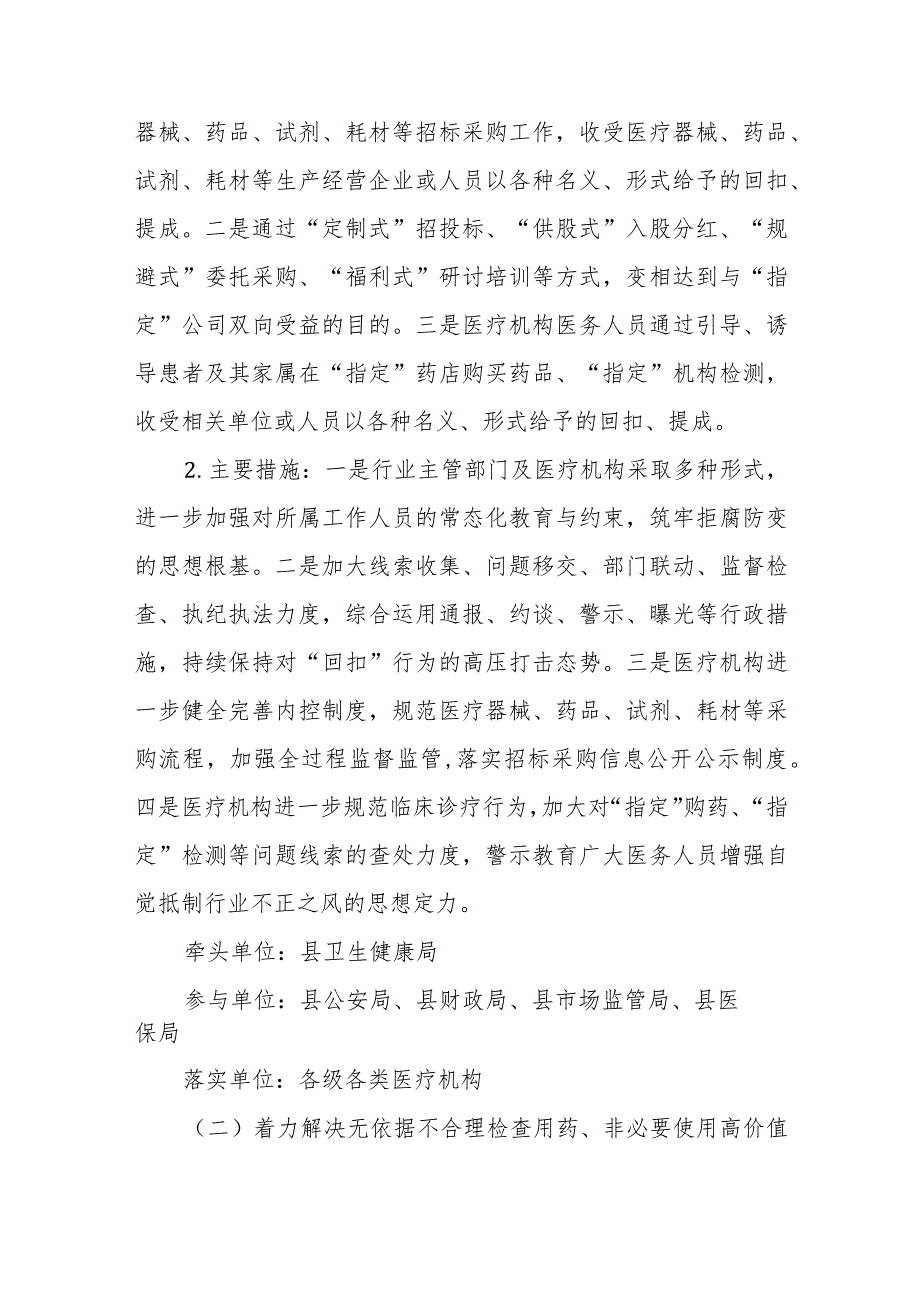 器械、药品、试剂、耗材等招标采购工作，收受医疗器械、药品、
试剂、耗材等生产经营企业或人员以各种名义、形式给予的回扣、
提成。二是通过“定制式”招投标、“供股式”入股分红、“规
避式”委托采购、“福利式”研讨培训等方式，变相达到与“指
定”公司双向受益的目的。三是医疗机构医务人员通过引导、诱
导患者及其家属在“指定”药店购买药品、“指定”机构检测，
收受相关单位或人员以各种名义、形式给予的回扣、提成。
2. 主要措施：一是行业主管部门及医疗机构采取多种形式，
进一步加强对所属工作人员的常态化教育与约束，筑牢拒腐防变
的思想根基。二是加大线索收集、问题移交、部门联动、监督检
查、执纪执法力度，综合运用通报、约谈、警示、曝光等行政措
施，持续保持对“回扣”行为的高压打击态势。三是医疗机构进
一步健全完善内控制度，规范医疗器械、药品、试剂、耗材等采
购流程，加强全过程监督监管,落实招标采购信息公开公示制度。
四是医疗机构进一步规范临床诊疗行为,加大对“指定”购药、“指
定”检测等问题线索的查处力度，警示教育广大医务人员增强自
觉抵制行业不正之风的思想定力。
牵头单位：县卫生健康局
参与单位：县公安局、县财政局、县市场监管局、县医
保局
落实单位：各级各类医疗机构
（二）着力解决无依据不合理检查用药、非必要使用高价值